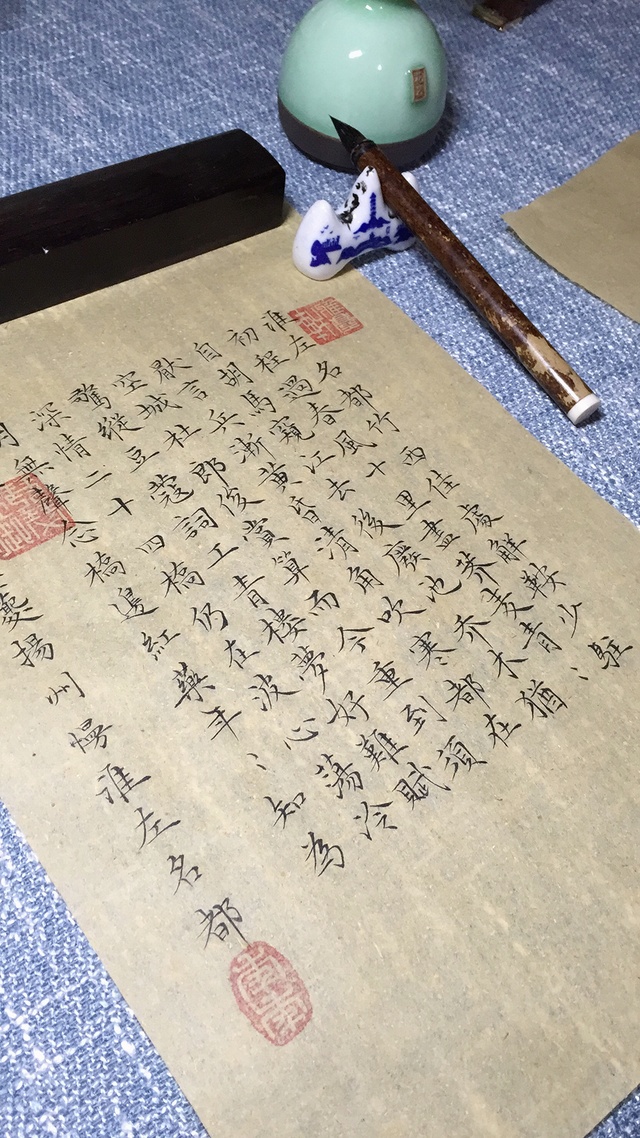 淮左名都竹西佳處解鞍少駐
初程過春風十里盡荠麦青〻
自胡馬窺江去後廢池乔木猶
厭言兵漸黄昏清角吹寒都在
空城杜郎俊賞算而今重到須
驚縱豆蔻詞工青樓夢好難賦
深情二十四橋仍在波心蕩冷
月無聲念橋邊紅藥年〻知為
夔揚州慢淮左名都